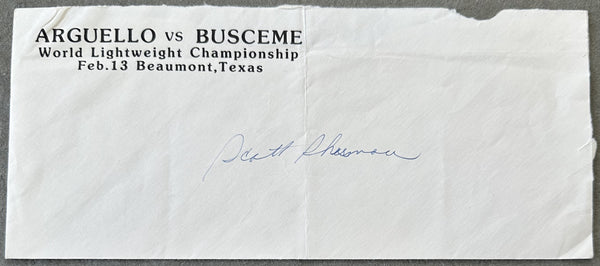 ARGUELLO VS BUSCEME
World Lightweight Championship
Feb.13 Beaumont,Texas
Scott Sherman